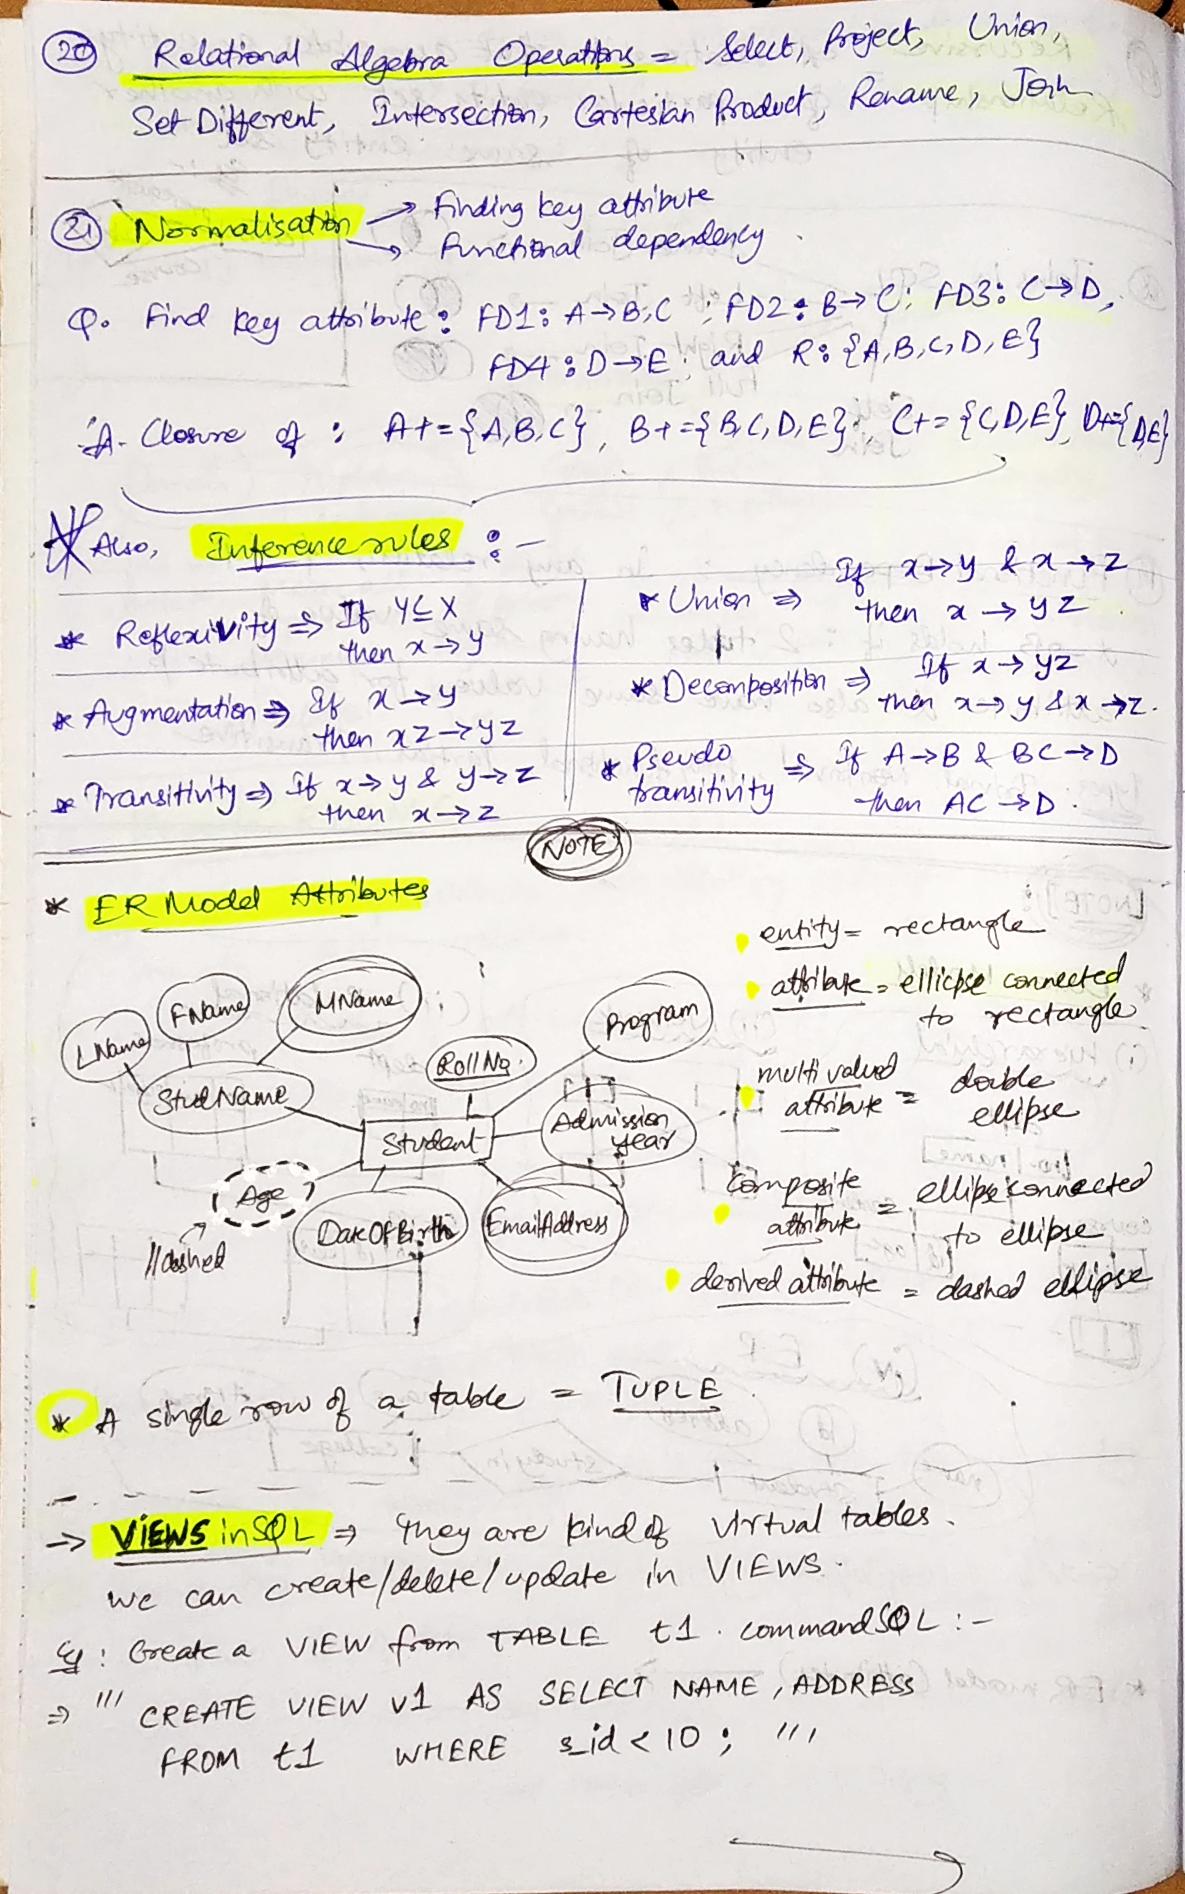 20 Relational Algebra Operations = Select, Project, Union,
Set Different, Intersection, Cartesian Product, Rename, Join
21 Normalisation → Finding key attribute
→ Functional dependency
Q. Find key attribute: FD1: A→B,C ; FD2: B→C; FD3: C→D,
FD4: D→E; and R: {A,B,C,D,E}
A. Closure of : A+={A,B,C}, B+={B,C,D,E}, C+={C,D,E}, D+={D,E}
* Also, Inference rules :-
* Reflexivity ⇒ If Y⊆X
then x→y
* Augmentation ⇒ If x→y
then xz→yz
* Transitivity ⇒ If x→y & y→z
then x→z
* Union ⇒ If x→y & x→z
then x→yz.
* Decomposition ⇒ If x→yz
then x→y & x→z.
* Pseudo transitivity ⇒ If A→B & BC→D
then AC→D.
NOTE
* ER Model Attributes
LName
FName
MName
StudName
Roll No.
Program
Student
Admission
year
Age
//dashed
DateOfBirth
EmailAddress
entity = rectangle
attribute = ellicpse connected
to rectangle
multi valued
attribute = double
ellipse
Composite
attribute = ellipse connected
to ellipse
derived attribute = dashed ellipse
* A single row of a table = TUPLE.
→ VIEWS in SQL ⇒ They are kind of virtual tables.
we can create/delete/update in VIEWS.
Eg: Create a VIEW from TABLE t1. command SQL :-
⇒ ''' CREATE VIEW v1 AS SELECT NAME, ADDRESS
FROM t1 WHERE s_id < 10; '''